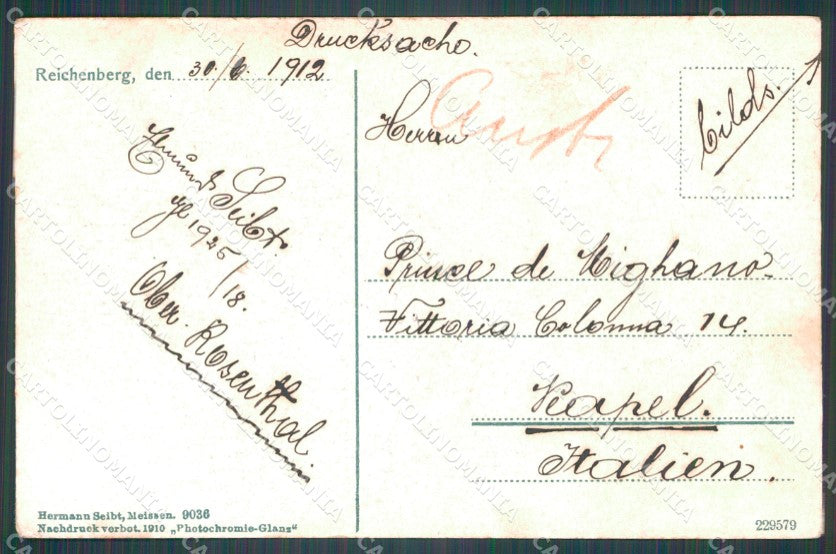 Drucksache.
Reichenberg, den 30/6. 1912
Herrn
Bilds.
Seibt.
1925/18.
Ober. Rosenthal.
Prince de Mighano.
Vittoria Colonna 14.
Neapel.
Italien.
Hermann Seibt, Meissen. 9036
Nachdruck verbot. 1910 „Photochromie-Glanz“
229579
CARTOLINOMANIA